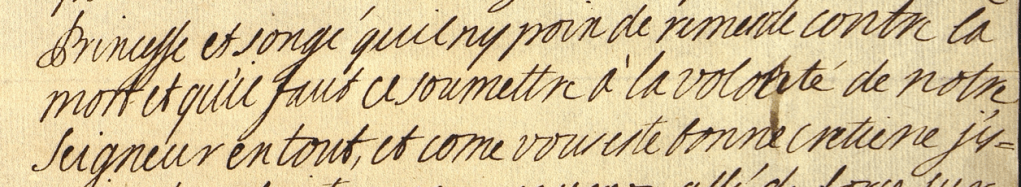 Princesse et songé quil ny poin de remede contre la
mort et qu'il faut ce soumettre à la volonté de notre
seigneur en tout, et come vous este bonne cretiene j'y=